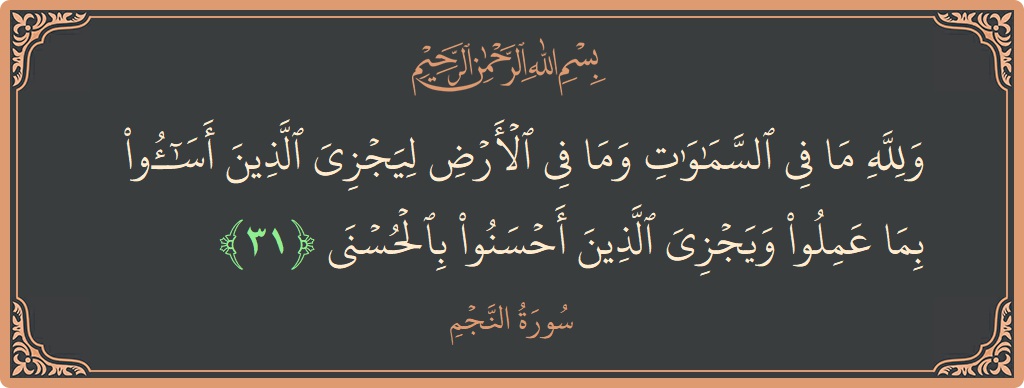 بِسْمِ اللهِ الرَّحْمٰنِ الرَّحِيْمِ
وَلِلَّهِ مَا فِي ٱلسَّمَٰوَٰتِ وَمَا فِي ٱلْأَرْضِ لِيَجْزِيَ ٱلَّذِينَ أَسَـٰٓـُٔوا۟
بِمَا عَمِلُوا۟ وَيَجْزِيَ ٱلَّذِينَ أَحْسَنُوا۟ بِٱلْحُسْنَى ﴿٣١﴾
سُورَةُ النَّجْمِ